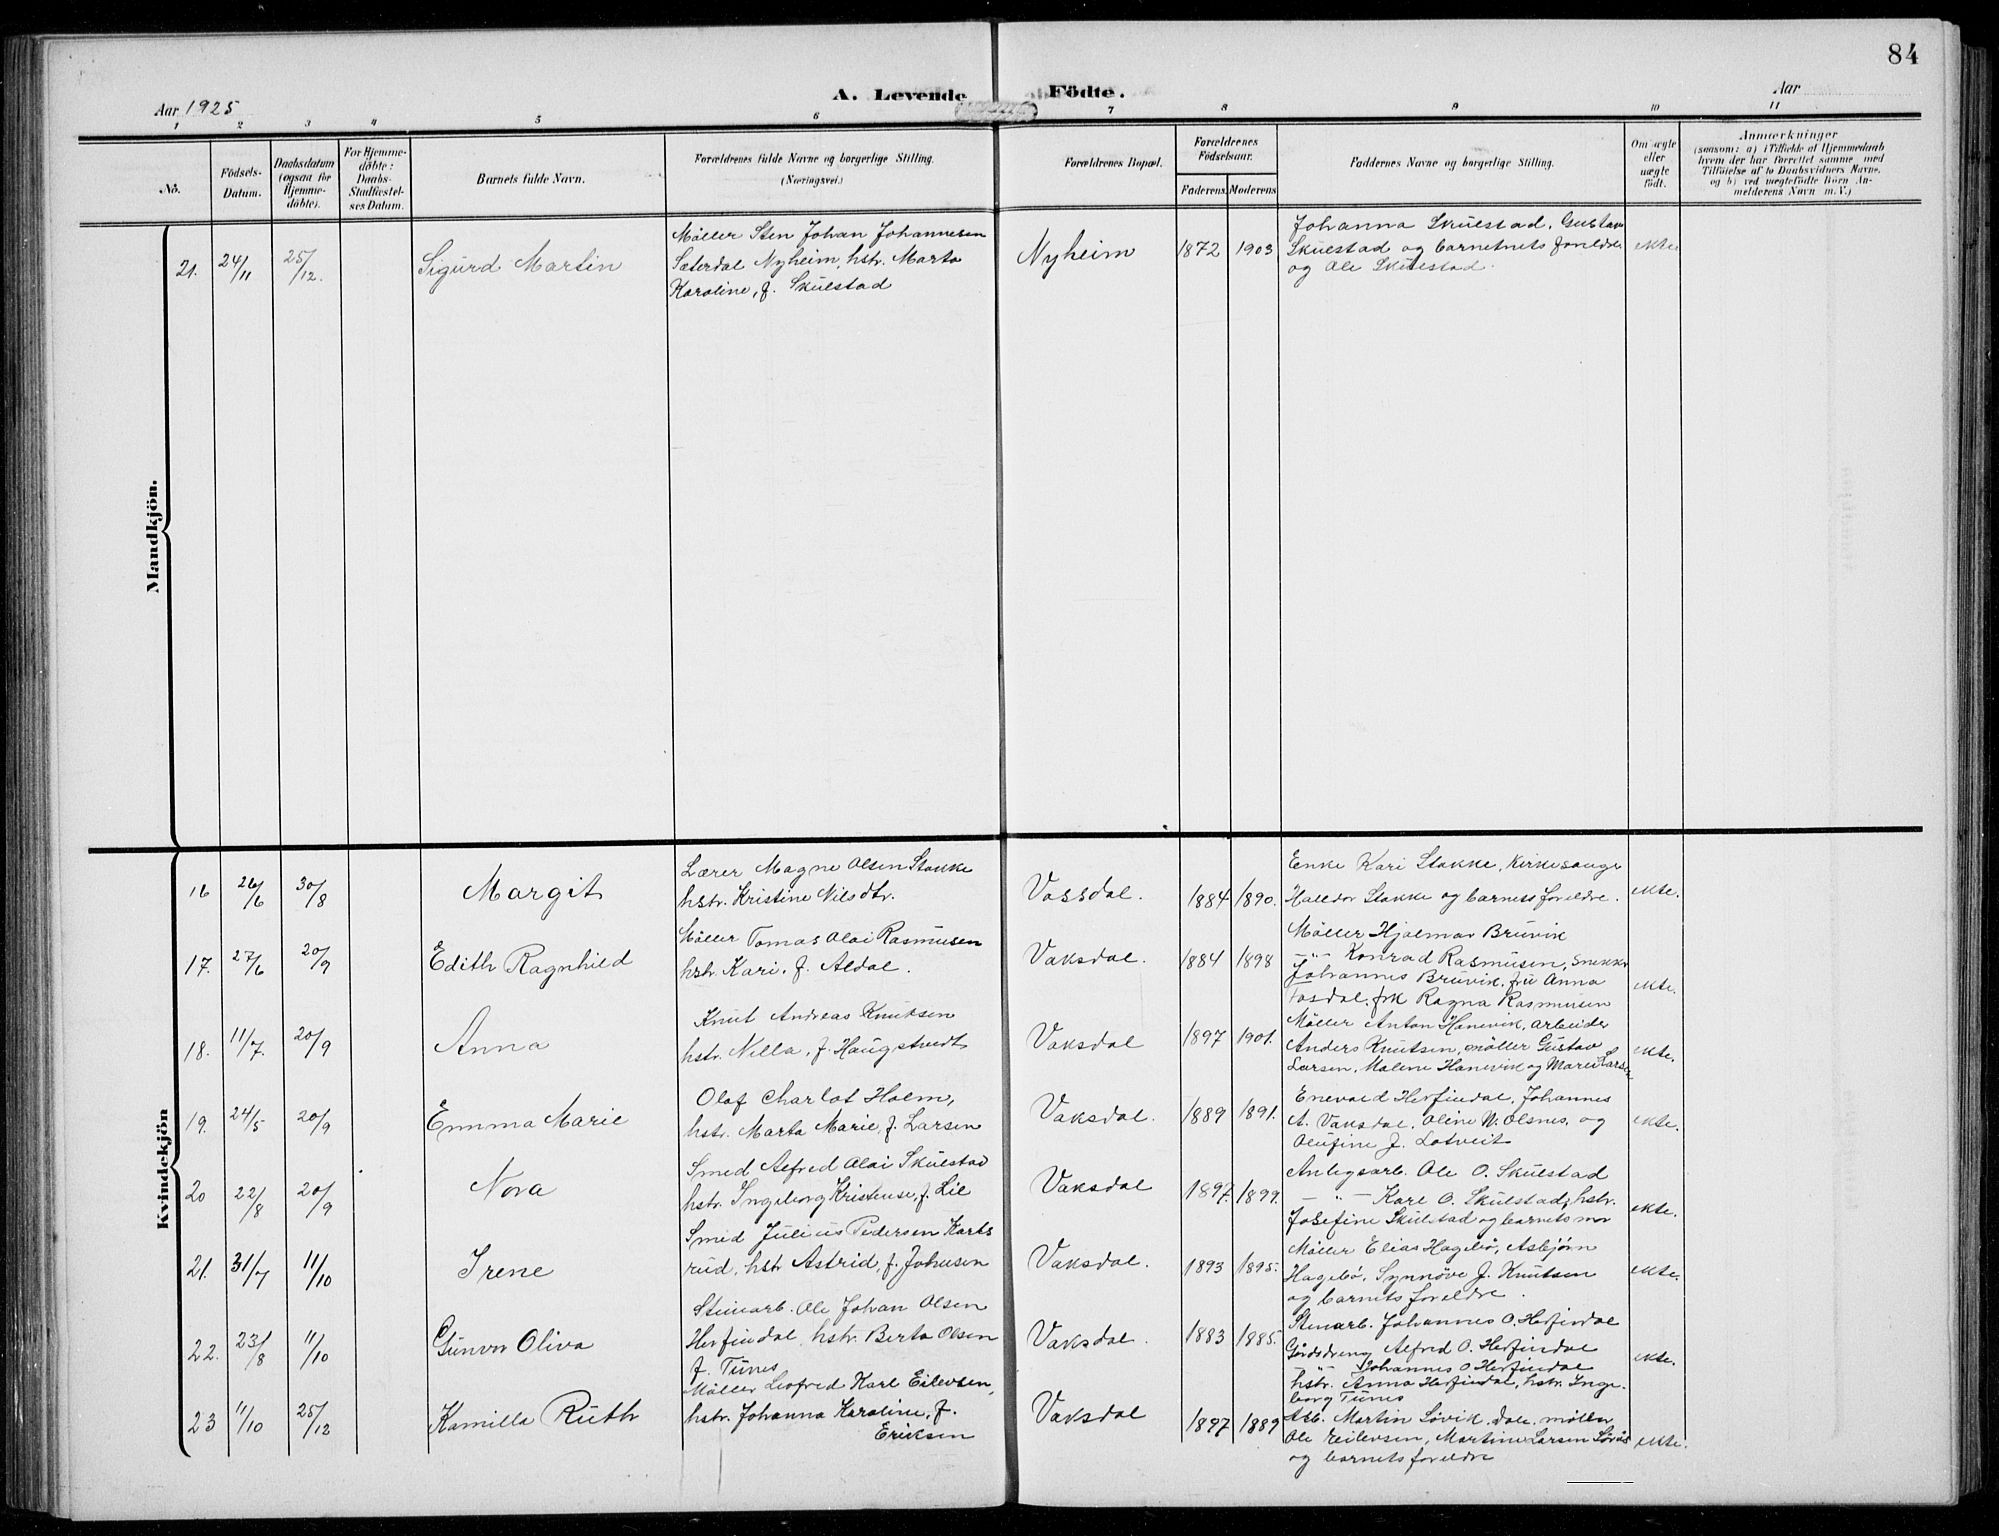 84
Aar 1925
A. Levende Födte.
Aar
1 2 3 4 5 6 7 8 9 10 11
No.
Födsels-Datum.
Daabsdatum (ogsaa for Hjemmedöbte).
For Hjemmedöbte: Daabs-Stadfæstelses Datum.
Barnets fulde Navn.
Forældrenes fulde Navne og borgerlige Stilling. (Næringsvei.)
Forældrenes Bopæl.
Forældrenes Födselsaar.
Faderens. Moderens
Faddernes Navne og borgerlige Stilling.
Om ægte eller uægte födt.
Anmærkninger
(saasom: a) i Tilfælde af Hjemmedaab hvem der har forrettet samme, med Tilföielse af to Daabsvidners Navne, og b) ved uægtefödte Börn Anmelderens Navn m. V.)
Mandkjön.
21. 24/11 25/12. Sigurd Martin
Møller Sten Johan Johannesen
Sæterdal Nyheim, hstr. Marta
Karoline, f. Skulstad
Nyheim 1872 1903
Johanna Skulestad, Gustav
Skulestad og barnetnets foreldre
og Ole Skulestad.
ekte
Kvindekjön
16 26/6 30/8 Margit
Lærer Magne Olsen Stakke
hstr. Kristine Nilsdtr.
Vassdal. 1884 1890.
Enke Kari Stakke, Kirkesanger
Halldor Stakke og barnets foreldre.
ekte.
17. 27/6 20/9 Edith Ragnhild
Møller Tomas Olai Rasmusen
hstr. Kari, f. Aldal.
Vaksdal. 1884 1898
Møller Hjalmar Bruvik
—"— Konrad Rasmusen, snekker
Johannes Bruvik, fru Anna
Fosdal, frk Ragna Rasmusen
ekte.
18. 11/7. 20/9 Anna
Knut Andreas Knutsen
hstr. Nilla, f. Haugstvedt
Vaksdal 1897 1901.
Møller Anton Hanevik, arbeider
Anders Knutsen, møller Gustav
Larsen, Malene Hanevik og Marie Larsen
ekte.
19. 24/5 20/9 Emma Marie
Olaf Charlot Holm,
hstr. Marta Marie, f. Larsen
Vaksdal. 1889 1891.
Enevald Herfindal, Johannes
A. Vaksdal, Oline N. Olsnes, og
Olufine J. Lotveit
ekte.
20 22/8 20/9 Nora
Smed Alfred Olai Skulstad
hstr. Ingeborg Kristense, f. Lie
Vaksdal 1897. 1899.
Anlegsarb. Ole O. Skulstad
—"— Karl O. Skulstad, hstr.
Josefine Skulstad og barnets mor
ekte.
21. 31/7 11/10 Irene
Smed Julius Pedersen Karts
rud, hstr Astrid, f. Johnsen
Vaksdal. 1893 1895.
Møller Elias Hagebø, Asbjørn
Hagebø, Synnöve J. Knutsen
og barnets foreldre.
ekte.
22. 23/8 11/10 Gunvor Oliva
Steinarb. Ole Johan Olsen
Herfindal, hstr. Berta Olsen
f. Tunes
Vaksdal. 1883 1885.
Stenarb. Johannes O. Herfindal
Gårdsdreng Alfred O. Herfindal
—"— Johannes O Herfindal
hstr. Anna Herfindal, hstr. Inge-
borg Tunes
ekte.
23 11/10 25/12 Kamilla Ruth
Møller Leofred Karl Eilevsen,
hstr. Johanna Karoline, f.
Eriksen
Vaksdal 1897 1889
Arb. Martin Løvik, Dale, møller
Ole Eilevsen, Martine Larsen
og barnets foreldre
ekte.